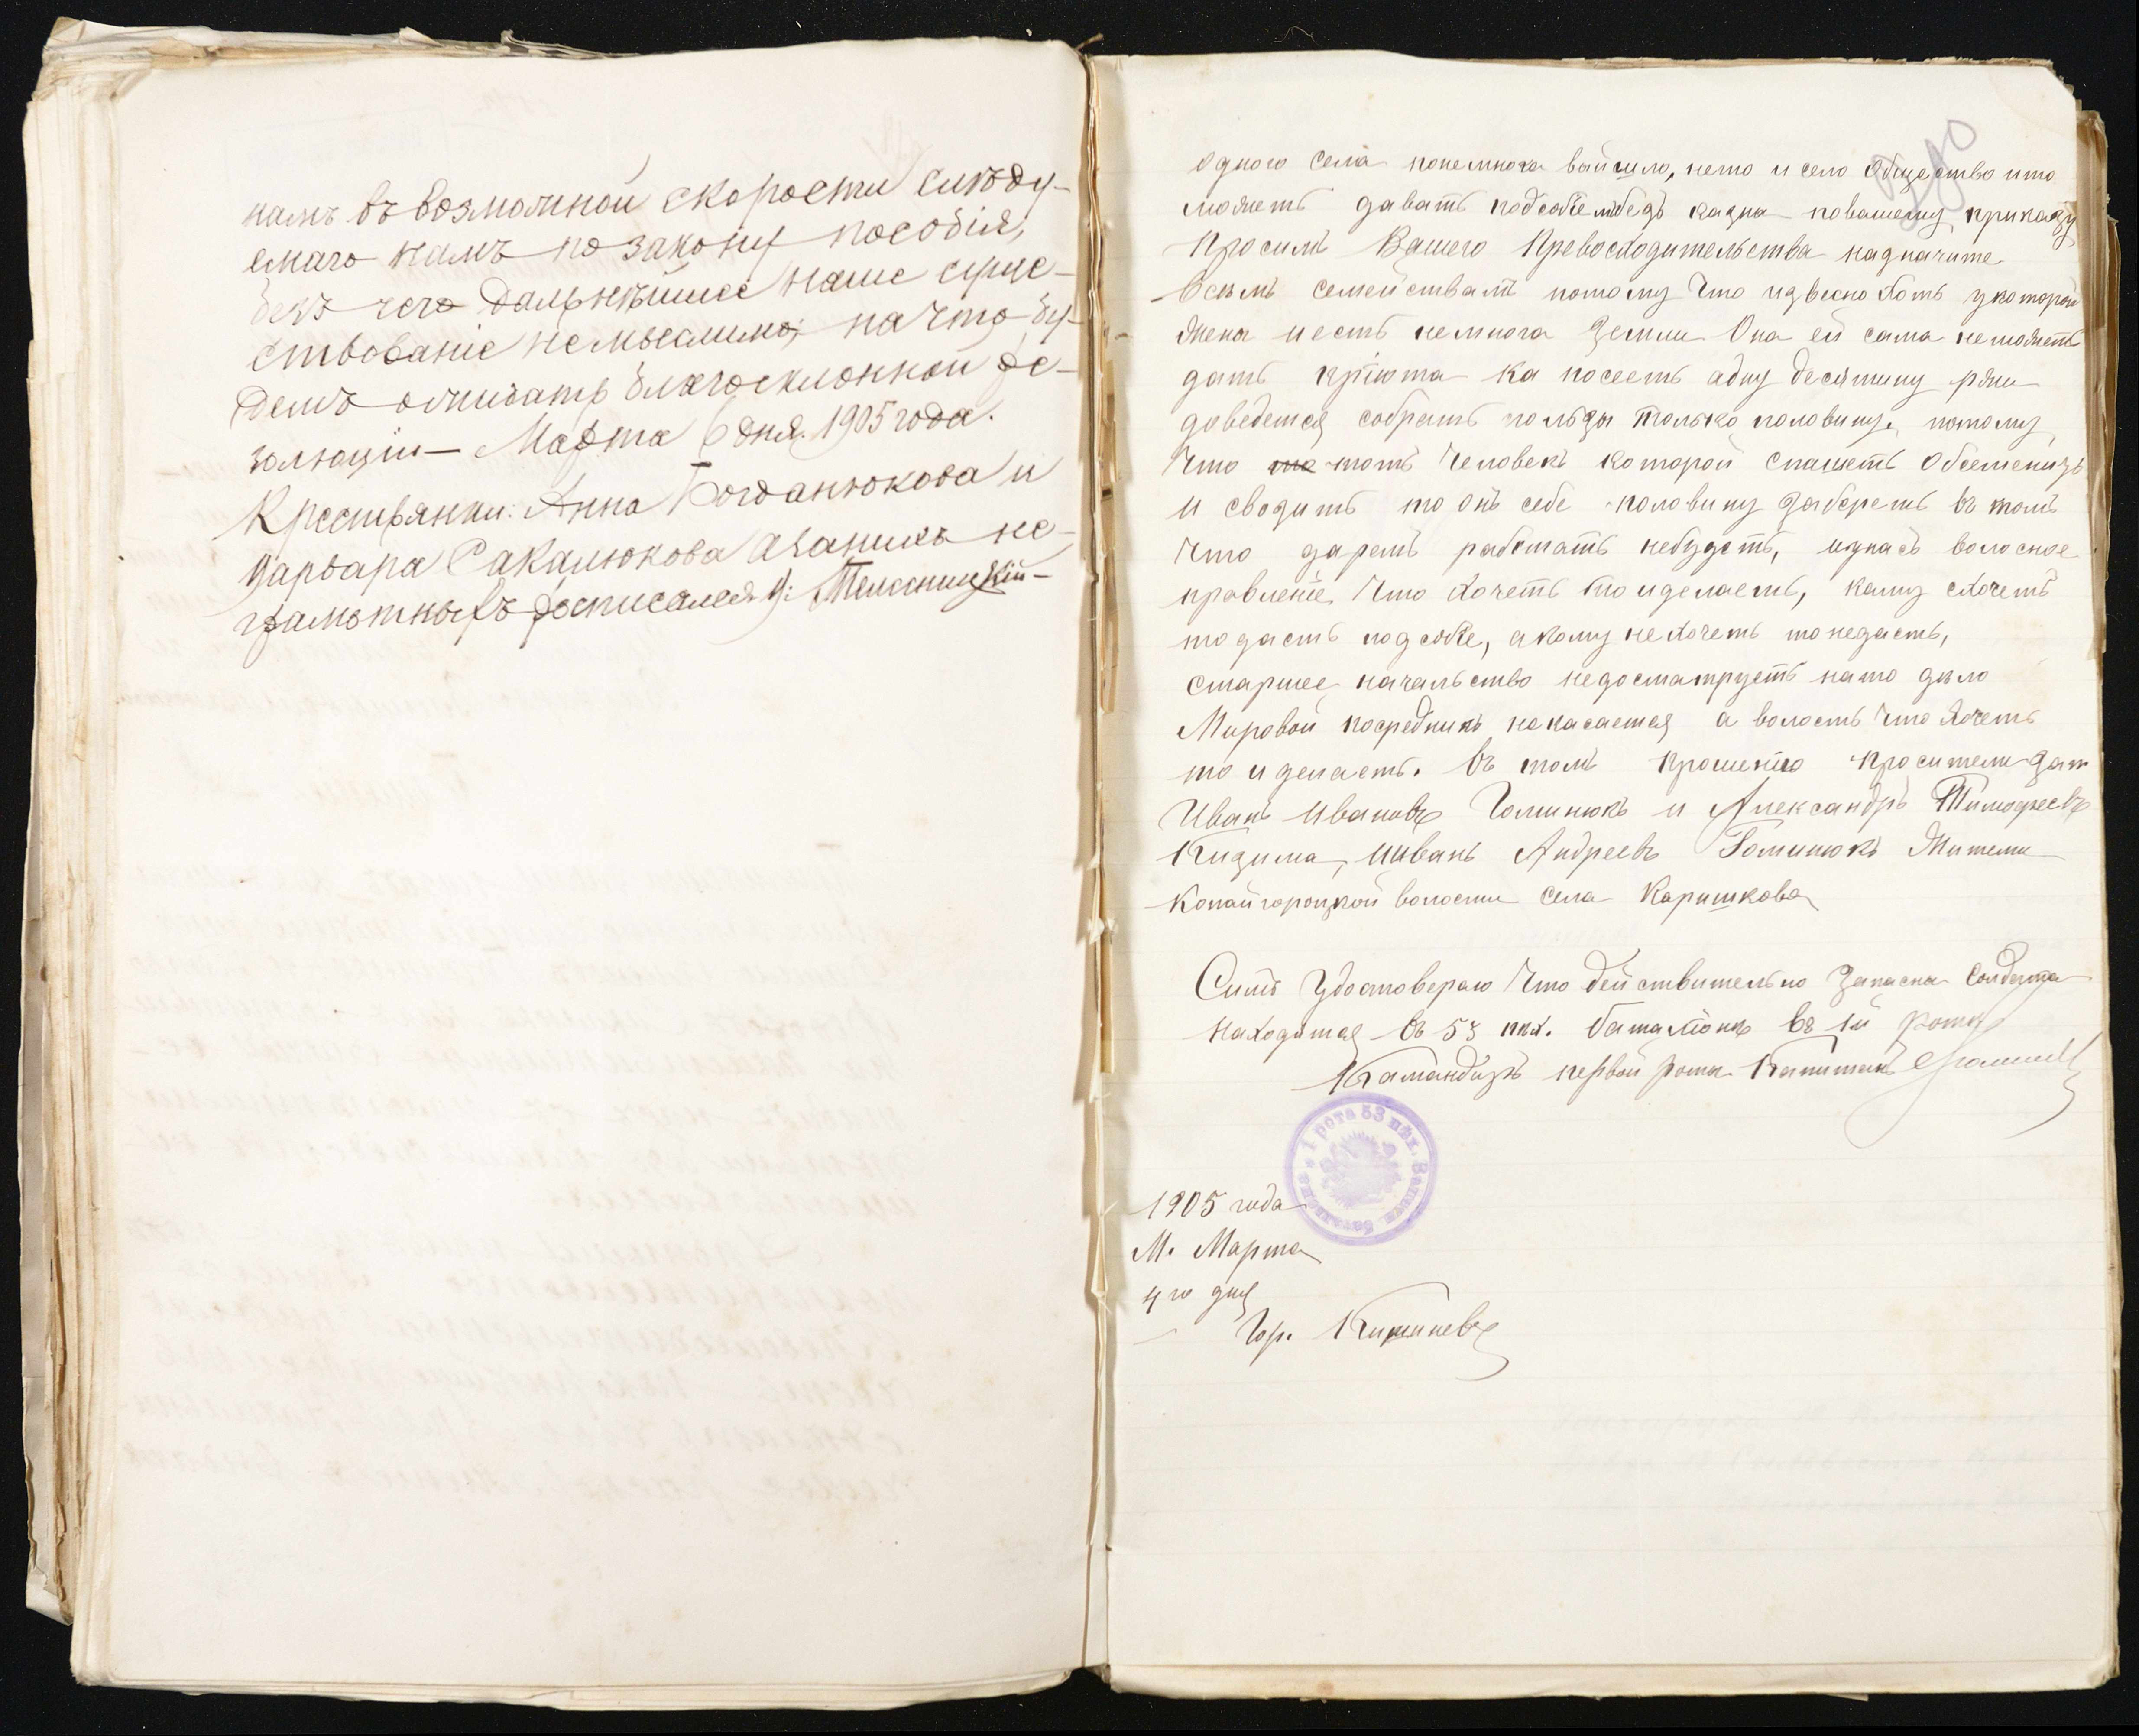 намъ въ возможной скорости слѣду-
емаго намъ по закону пособія,
безъ чего дальнѣйшее наше суще-
ствованіе немыслимо, на что бу-
демъ ожидать благосклонной ре-
золюціи — Марта 6 дня 1905 года.
Крестьянки: Анна Богданюкова и
Варвара Сакалюкова а заних не-
грамотныхъ росписался
одного села понемнога выйшло, нето и село Общество и то
можетъ давать подсобіе казна повашему приказу
Просимъ Вашего Превосходительства надначите
Всѣмъ семействамъ потому Что извесно хоть укоторой
жены иесть немнога Земли Она ей сама неможетъ
дать пріюта ка посеетъ адну десятину ржи
доведется собрать пользы только половину, потому
Что тотъ Человекъ которой спашетъ Обсеменитъ
и сводитъ то онъ себе половину заберетъ въ томъ
Что даромъ работать небудетъ, изнасъ волосное
правленіе Что хочетъ то иделаетъ, каму схочетъ
то дасть подсобіе, а кому не хочетъ то недасть,
старшее начальство недосматруетъ нато дѣло
Мировой посредникъ некасается а волость Что хочетъ
то и делаетъ. Въ томъ прошенію просители
Иванъ Ивановъ Гоминюкъ и Александръ Тимофеевъ
Кизима, Ииванъ Андреевъ Гоминюкъ Жители
Копайгороцкой волости села Каришкова
Симъ Удостовераю Что действительно Запасна Солдата
находятся въ 53 пѣх. баталіонѣ въ 1й роте
Камандиръ первой роты Капитанъ
1 рота 53 пѣх. баталіона
1905 года
М. Марта
4го дня
Гор. Кишиневъ